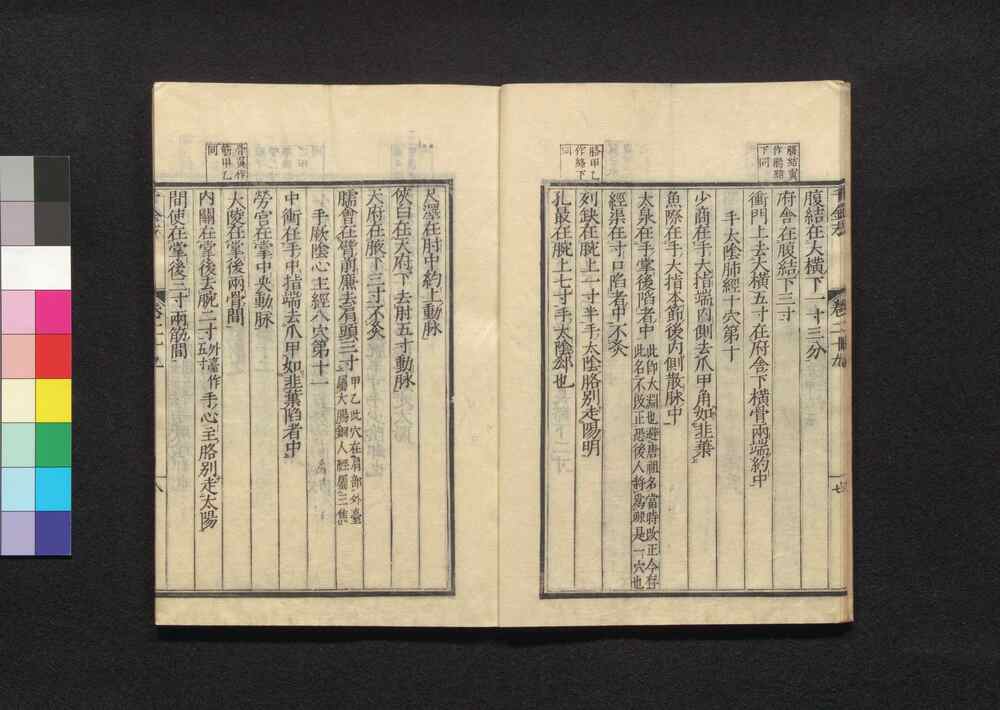 腹結在大横下一寸三分
府舎在腹結下三寸
衝門上去大横五寸在府舎下横骨兩端約中
手太陰肺經十穴第十
少商在手大指端內側去爪甲角如韭葉
魚際在手大指本節後內側散脉中
太泉在手掌後陷者中 此即大淵也避唐祖名當時改正今存
此名不改正恐後人將爲別是一穴也
經渠在寸口陷者中不灸
列缺在腕上一寸半手太陰胳別走陽明
孔最在腕上七寸手太陰郄也
膈甲乙
作絡下
同
尺澤在肘中約上動脉
俠白在天府下去肘五寸動脉
天府在腋下三寸不灸
臑會在臂前廉去肩頭三寸 甲乙此穴在肩部外臺
屬大腸銅人經屬三焦
手厥陰心主經八穴第十一
中衝在手中指端去爪甲如韭葉陷者中
勞宮在掌中央動脉
大陵在掌後兩骨間
內關在掌後去腕二寸 外臺作
五寸 手心主胳別走太陽
間使在掌後三寸兩筋間